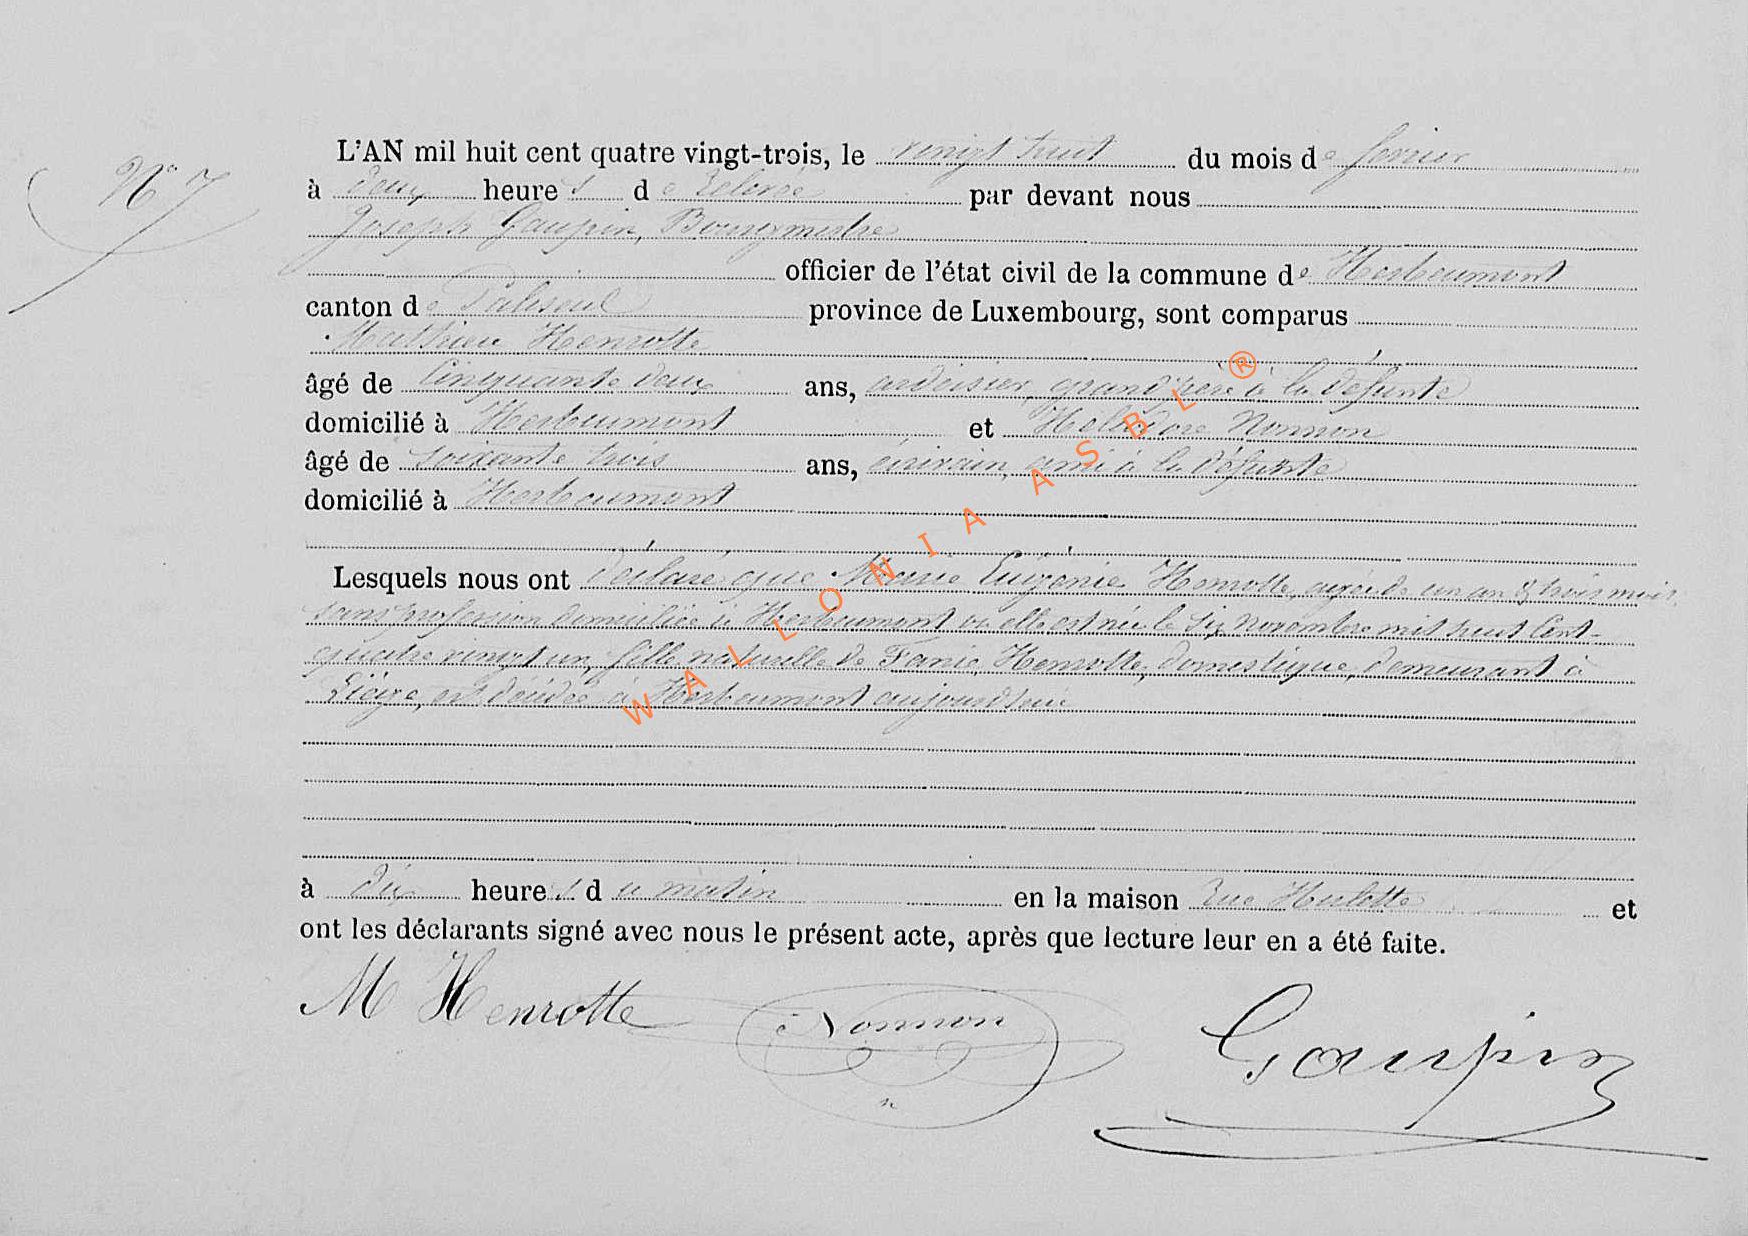 N° 7
L'AN mil huit cent quatre vingt-trois, le vingt huit du mois de fevrier
à deux heures de relevée par devant nous
Joseph Gaupin, Bourgmestre
officier de l'état civil de la commune de Herbeumont
canton de Paliseul province de Luxembourg, sont comparus
Mathieu Henrotte
âgé de Cinquante deux ans, ardoisier, grand'père à la défunte
domicilié à Herbeumont et Nonnon
âgé de soixante trois ans, écrivain, ami à la défunte
domicilié à Herbeumont
Lesquels nous ont déclaré que Marie Eugénie Henrotte, agée de un an & trois mois,
sans profession domiciliée à Herbeumont où elle est née le six novembre mil huit Cent-
quatre vingt un, fille naturelle de Fanie Henrotte, domestique, demeurant à
Liége, est décédée à Herbeumont aujourd'hui
à dix heures du matin en la maison Rue et
ont les déclarants signé avec nous le présent acte, après que lecture leur en a été faite.
M Henrotte Nonnon Gaupin
WALLONIA ASBL ®